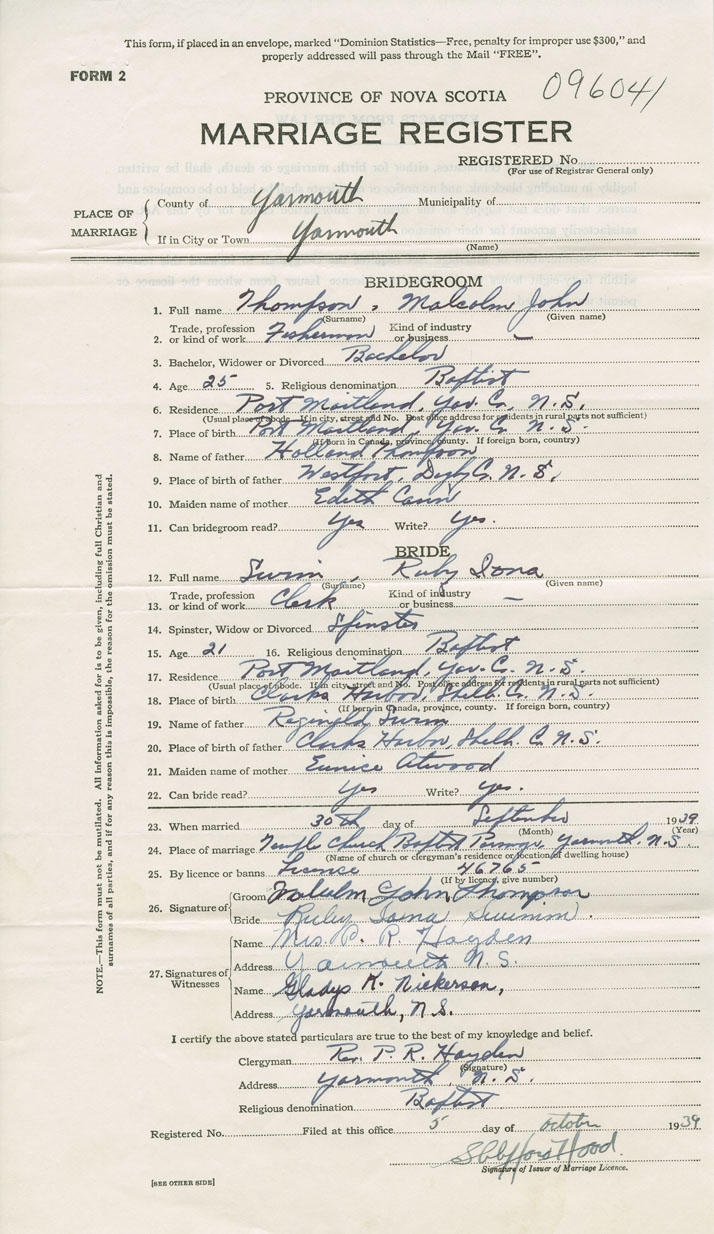 This form, if placed in an envelope, marked “Dominion Statistics—Free, penalty for improper use $300,” and
properly addressed will pass through the Mail “FREE”.
FORM 2
096041
PROVINCE OF NOVA SCOTIA
MARRIAGE REGISTER
REGISTERED No.
(For use of Registrar General only)
PLACE OF MARRIAGE
County of Yarmouth Municipality of
If in City or Town Yarmouth
(Name)
BRIDEGROOM
1. Full name Thompson, Malcolm John
(Surname) (Given name)
2. Trade, profession or kind of work Fisherman Kind of industry or business —
3. Bachelor, Widower or Divorced Bachelor
4. Age 25 5. Religious denomination Baptist
6. Residence Port Maitland, Yar. Co. N.S.
(Usual place of abode. If in city, street and No. Post office address for residents in rural parts not sufficient)
7. Place of birth Port Maitland, Yar. Co. N.S.
(If born in Canada, province, county. If foreign born, country)
8. Name of father Holland Thompson
9. Place of birth of father Westport, Digby Co. N.S.
10. Maiden name of mother Edith Cann
11. Can bridegroom read? Yes Write? Yes.
BRIDE
12. Full name Swim, Ruby Iona
(Surname) (Given name)
13. Trade, profession or kind of work Clerk Kind of industry or business —
14. Spinster, Widow or Divorced Spinster
15. Age 21 16. Religious denomination Baptist
17. Residence Port Maitland, Yar. Co. N.S.
(Usual place of abode. If in city, street and No. Post office address for residents in rural parts not sufficient)
18. Place of birth Clarks Harbor, Shelb. Co. N.S.
(If born in Canada, province, county. If foreign born, country)
19. Name of father Reginald Swim
20. Place of birth of father Clarks Harbor, Shelb. C. N.S.
21. Maiden name of mother Eunice Atwood
22. Can bride read? Yes Write? Yes.
23. When married 30th day of September 1939
(Month) (Year)
24. Place of marriage Temple Church Baptist Yarmouth. N.S.
(Name of church or clergyman's residence or location of dwelling house)
25. By licence or banns Licence 46765
(If by licence, give number)
26. Signature of
Groom Malcolm John Thompson
Bride Ruby Iona Swimm.
27. Signatures of Witnesses
Name Mrs. P. R. Hayden
Address Yarmouth N.S.
Name Gladys K. Nickerson,
Address Yarmouth, N.S.
I certify the above stated particulars are true to the best of my knowledge and belief.
Clergyman Rev. P. R. Hayden
(Signature)
Address Yarmouth, N.S.
Religious denomination Baptist
Registered No. Filed at this office 5 day of October 1939
Hood.
Signature of Issuer of Marriage Licence.
[SEE OTHER SIDE]
NOTE.—This form must not be mutilated. All information asked for is to be given, including full Christian and
surnames of all parties, and if for any reason this is impossible, the reason for the omission must be stated.